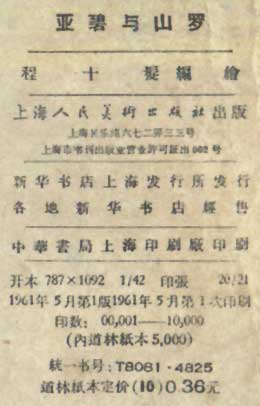 亚碧与山罗
程十髮編繪
上海人民美術出版社出版
上海長乐路六七二弄三三号
上海市书刊出版业营业許可証出002号
新华书店上海发行所发行
各地新华书店經售
中華書局上海印刷厰印刷
开本 787×1092 1/42 印張 20/21
1961年5月第1版1961年5月第1次印刷
印数: 00,001——10,000
(內道林紙本5,000)
統一书号: T8081·4825
道林紙本定价(10)0.36元